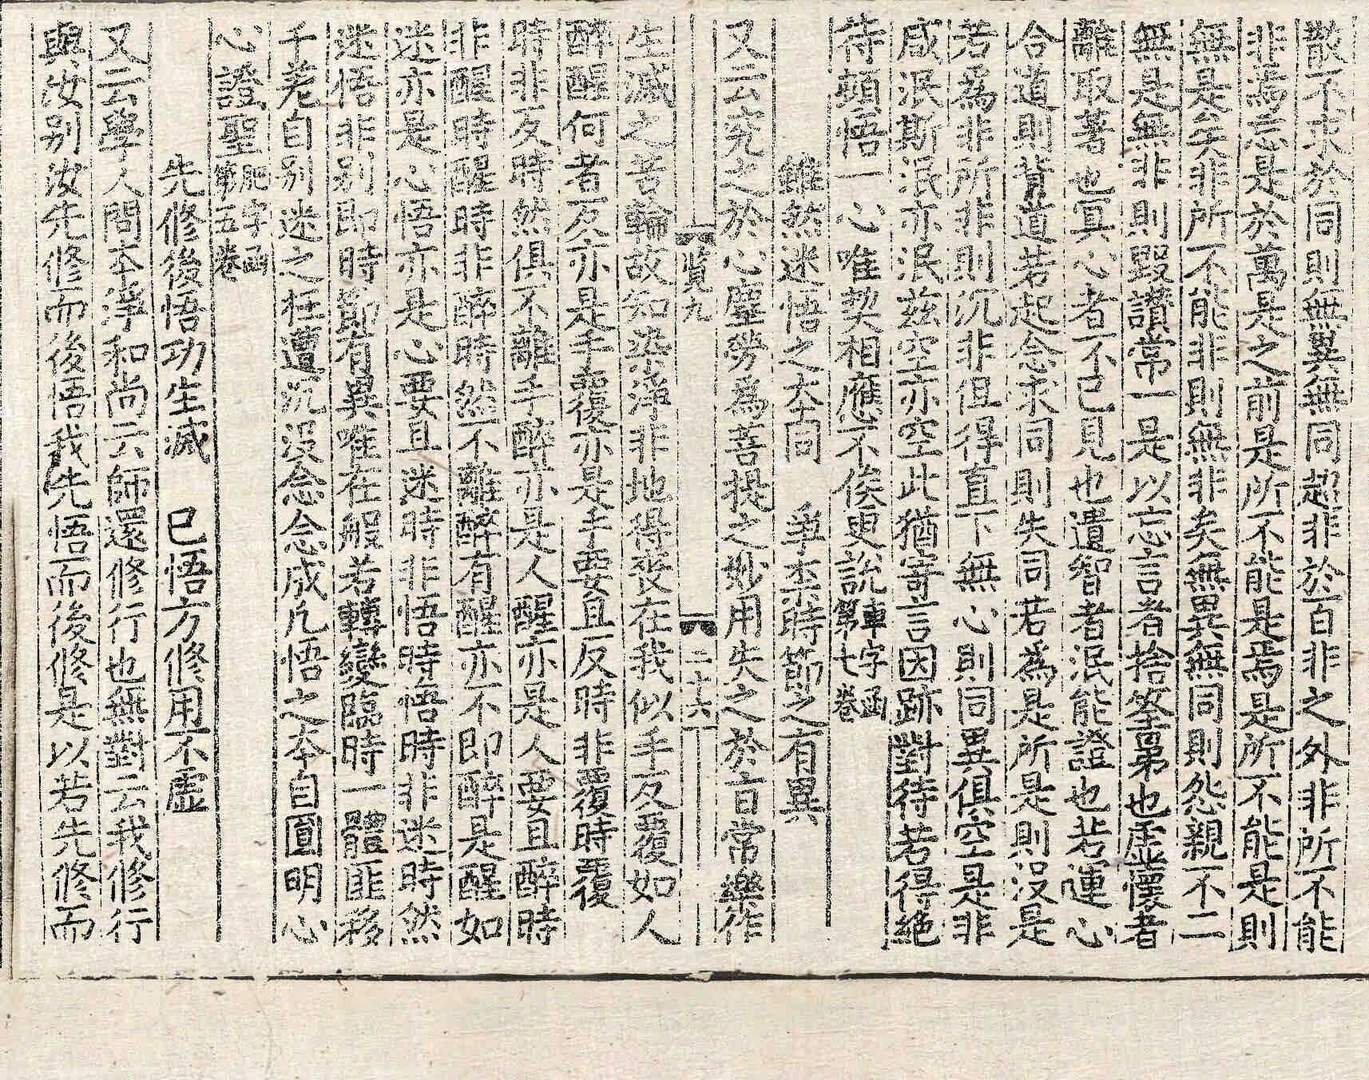 散不求於同則無異無同超非於百非之外非所不能
非焉忘是於萬是之前是所不能是焉是所不能是則
無是矣非所不能非則無非矣無異無同則怨親不二
無是無非則毀讃常一是以忘言者捨筌苐也虛懷者
離取著也冥心者不己見也遺智者泯能證也若運心
合道則背道若起念求同則失同若為是所是則沒是
若為非所非則沉非但得直下無心則同異俱空是非
咸泯斯泯亦泯兹空亦空此猶寄言因跡對待若得絕
待頓悟一心唯契相應不俟更說車字函第七卷
雖然迷悟之大同 爭柰時節之有異
又云究之於心塵勞為菩提之妙用失之於旨常樂作
覧九 二十六
生滅之苦輪故知染淨非地得丧在我似手反覆如人
醉醒何者反亦是手覆亦是手要且反時非覆時覆
時非反時然俱不離手醉亦是人醒亦是人要且醉時
非醒時醒時非醉時然不離醉有醒亦不即醉是醒如
迷亦是心悟亦是心要且迷時非悟時悟時非迷時然
迷悟非别即時節有異唯在般若轉變臨時一體匪移
千差自别迷之枉遭沉沒念念成凡悟之本自圓明心
心證聖肥字函第五卷
先修後悟功生滅 已悟方修用不虛
又云學人問本淨和尚云師還修行也無對云我修行
與汝别汝先修而後悟我先悟而後修是以若先修而